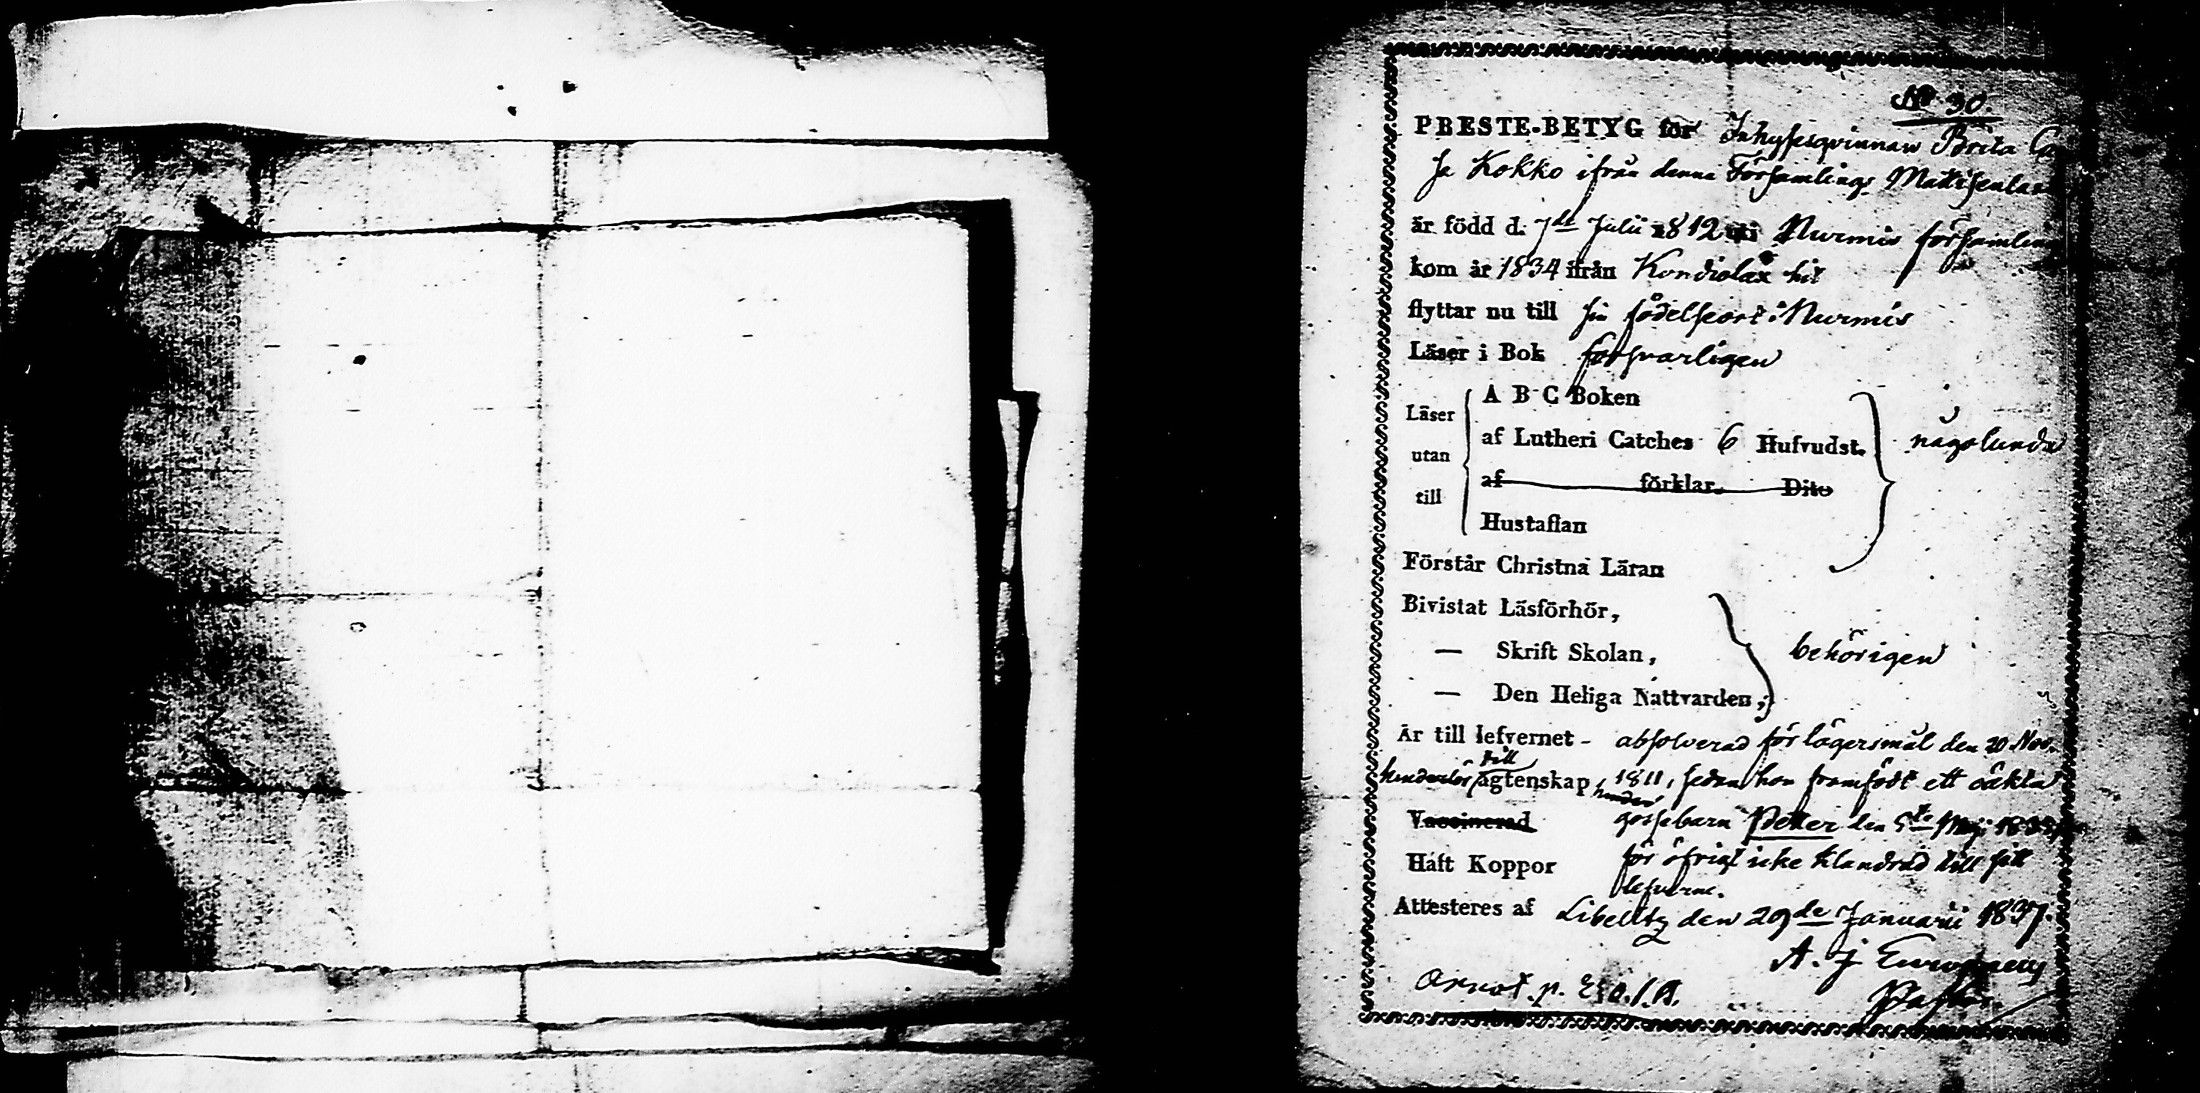 No 30.
PRESTE-BETYG för Inhysesqvinnan Brita Ca
sa Kokko ifrån denna Församlings Mattisenlax
är född d. 7de Julii 1812 i Nurmis församling
kom år 1834 ifrån Kondiolax hit
flyttar nu till sin födelseort i Nurmis
Läser i Bok försvarligen
Läser utan till
A B C Boken
af Lutheri Catches 6 Hufvudst. någolunda
af förklar. Dito
Hustaflan
Förstår Christna Läran
Bivistat Läsförhör,
— Skrift Skolan, behörigen
— Den Heliga Nattvarden,
Är till lefvernet - absolverad för lägersmål den 20 Nov.
hinderlös till ägtenskap, sedan hon framfödt ett oäkta
Vaccinerad gossebarn Petter den 5te Maji
Haft Koppor för öfrigt icke klandrad till sitt
lefverne.
Attesteres af Libelitz den 29de Januarii 1837.
A. J Europaeus
Pastor.